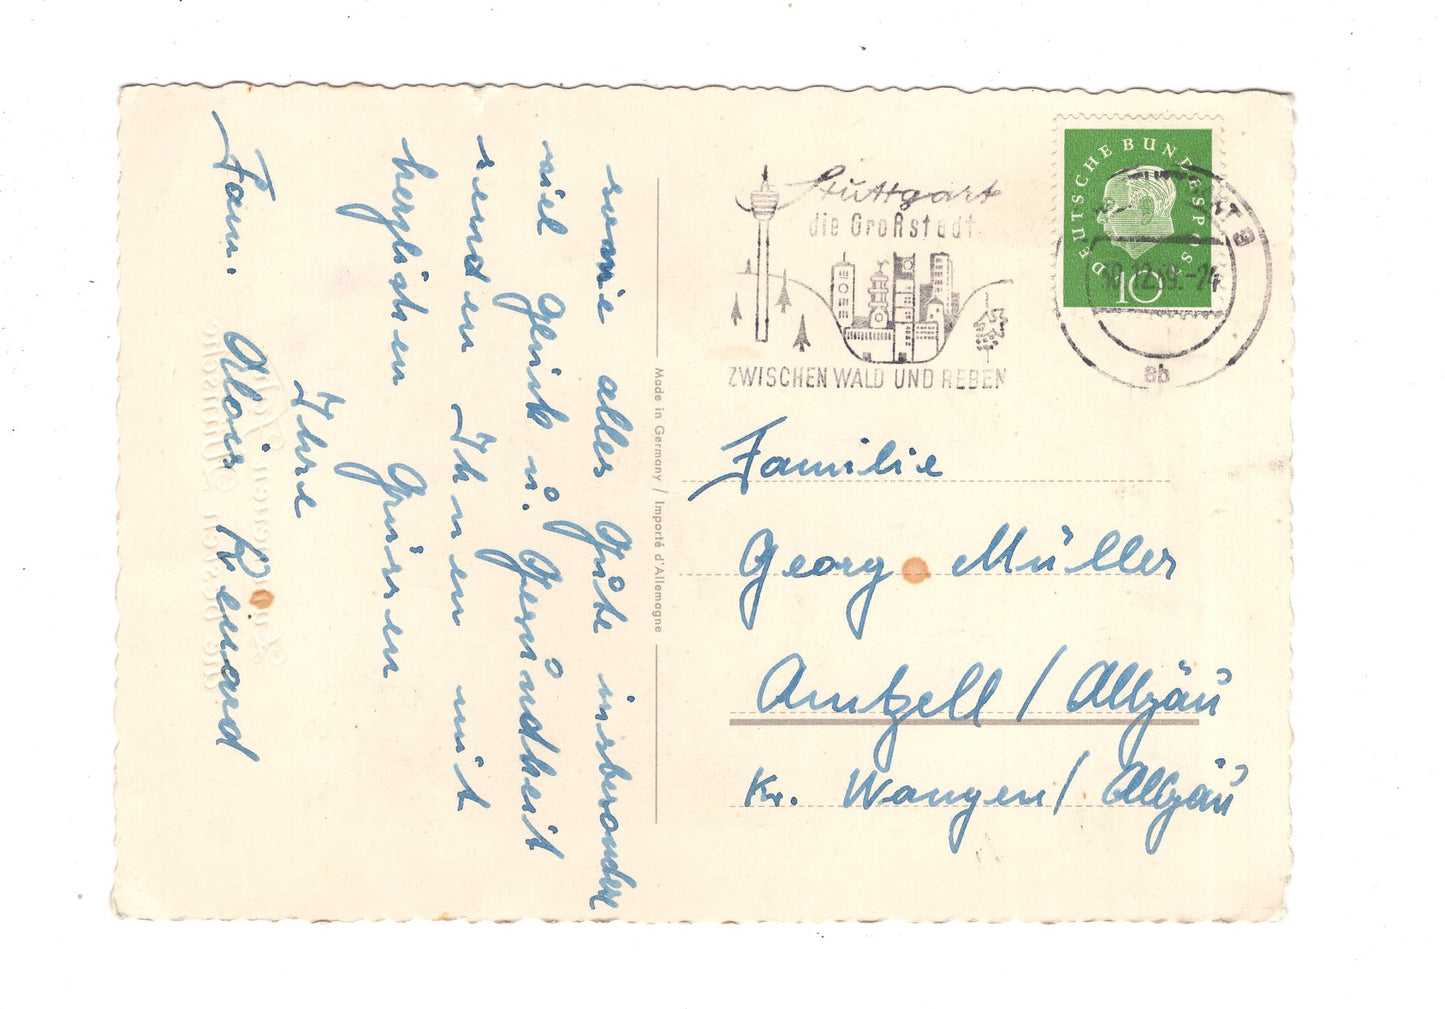 sowie alles Gute insbesondere
viel Glück u. Gesundheit
senden Ihnen mit
herzlichen Grüssen
Ihre
Fam. Alois Renard
Made in Germany / Importé d'Allemagne
Stuttgart
die Großstadt
ZWISCHEN WALD UND REBEN
DEUTSCHE BUNDESPOST
10
12.59.-24
ab
Familie
Georg Müller
Amtzell / Allgäu
Kr. Wangen / Allgäu